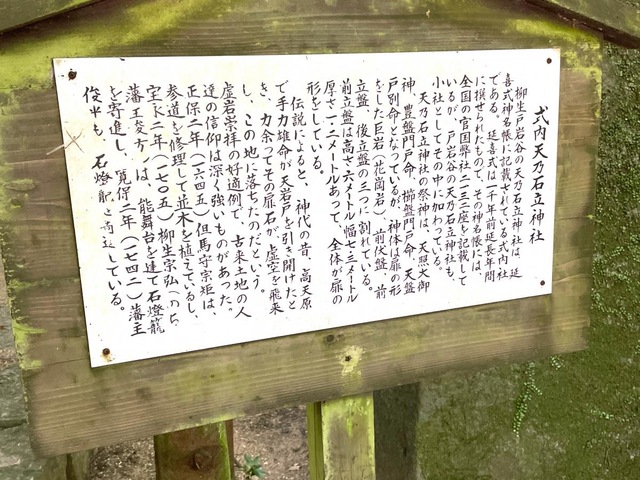 式内天乃石立神社
柳生戸岩谷の天乃石立神社は、延
喜式神名帳に記載されている式内社
である。延喜式は一千年前延長年間
に撰せられたもので、その神名帳には、
全国の官国弊社二一三二座を記載して
いるが、戸岩谷の天乃石立神社も、
小社としてその中に加わっている。
天乃石立神社の祭神は、天照大御
神、豊盤門戸命、櫛盤門戸命、天盤
戸別命となっているが、神体は扉の形
をした巨岩(花崗岩)、前伏盤、前
立盤、後立盤の三つに割れている。
前立盤は高さ六メートル幅七・三メートル
厚さ一・二メートルあって、全体が扉の
形をしている。
伝説によると、神代の昔、高天原
で手力雄命が天岩戸を引き開けたと
き、力余ってその扉石が、虚空を飛来
し、この地に落ちたのだという。
虚岩崇拝の好適例で、古来土地の人
達の信仰は深く強いものがあった。
正保二年(一六四五)但馬守宗矩は、
参道を修理して並木を植えているし、
宝永二年(一七〇五)柳生宗弘(のち
藩王俊方)は、能舞台を建て石燈籠
を寄進し、寛保二年(一七四二)藩主
俊平も、石燈籠と寄進している。